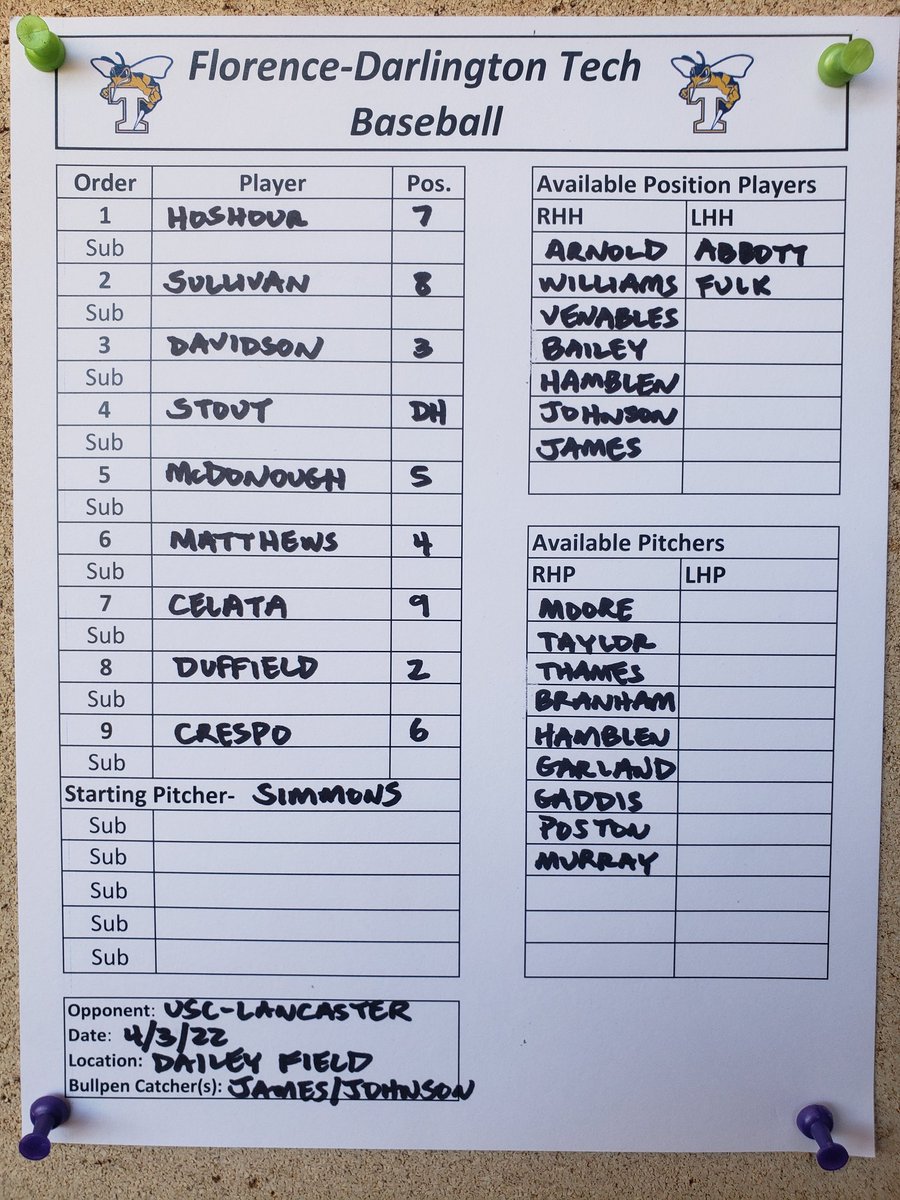 Florence-Darlington Tech
Baseball
T
T
Order Player Pos.
1 HOSHOUR 7
Sub
2 SULLIVAN 8
Sub
3 DAVIDSON 3
Sub
4 STOUT DH
Sub
5 McDONOUGH 5
Sub
6 MATTHEWS 4
Sub
7 CELATA 9
Sub
8 DUFFIELD 2
Sub
9 CRESPO 6
Sub
Starting Pitcher- SIMMONS
Sub
Sub
Sub
Sub
Sub
Opponent: USC-LANCASTER
Date: 4/3/22
Location: DAILEY FIELD
Bullpen Catcher(s): JAMES/JOHNSON
Available Position Players
RHH LHH
ARNOLD ABBOTT
WILLIAMS FULK
VENABLES
BAILEY
HAMBLEN
JOHNSON
JAMES
Available Pitchers
RHP LHP
MOORE
TAYLOR
THAMES
BRANHAM
HAMBLEN
GARLAND
GADDIS
POSTON
MURRAY